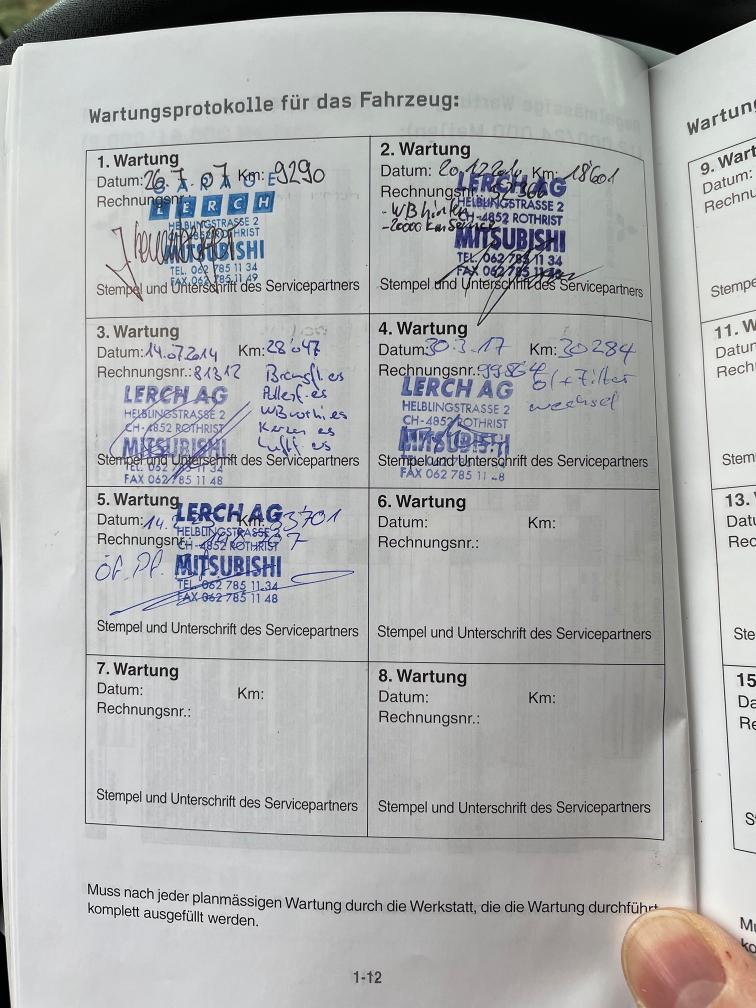 Wartungsprotokolle für das Fahrzeug:
1. Wartung
Datum: 26.7.07 Km: 9290
GARAGE
Rechnungsnr.:
LERCH
HELBLINGSTRASSE 2
CH-4852 ROTHRIST
MITSUBISHI
TEL. 062 785 11 34
FAX 062 785 11 49
Stempel und Unterschrift des Servicepartners
2. Wartung
Datum: Km: 18'601
Rechnungsnr.:
LERCH AG
- WB hinten
HELBLINGSTRASSE 2
- 20000 Km Service
CH-4852 ROTHRIST
MITSUBISHI
TEL. 062 785 11 34
FAX 062 785 11
Stempel und Unterschrift des Servicepartners
3. Wartung
Datum: 14.07.2014 Km: 28'047
Rechnungsnr.: 81312
LERCH AG
HELBLINGSTRASSE 2
CH-4852 ROTHRIST
MITSUBISHI
TEL. 062 785 11 34
FAX 062 785 11 48
Bremsfl. es
Pollenf. es
WB vorhi. es
Kerzen es
Luftfi es
Stempel und Unterschrift des Servicepartners
4. Wartung
Datum: 30.3.17 Km: 30284
Rechnungsnr.: 99864
öl + Filter
wechsel
LERCH AG
HELBLINGSTRASSE 2
CH-4852 ROTHRIST
MITSUBISHI
Stempel und Unterschrift des Servicepartners
FAX 062 785 11
5. Wartung
Datum: 14. Km: 33701
Rechnungsnr.:
LERCH AG
HELBLINGSTRASSE 2
CH-4852 ROTHRIST
MITSUBISHI
TEL. 062 785 11 34
FAX 062 785 11 48
Stempel und Unterschrift des Servicepartners
6. Wartung
Datum: Km:
Rechnungsnr.:
Stempel und Unterschrift des Servicepartners
7. Wartung
Datum: Km:
Rechnungsnr.:
Stempel und Unterschrift des Servicepartners
8. Wartung
Datum: Km:
Rechnungsnr.:
Stempel und Unterschrift des Servicepartners
Muss nach jeder planmässigen Wartung durch die Werkstatt, die die Wartung durchführt
komplett ausgefüllt werden.
1-12
Wartung
9. Wart
Datum:
Rechnu
Stempe
11. W
Datum
Rech
Stem
13.
Datu
Rec
Ste
15
Da
Re
S
Mu
ko